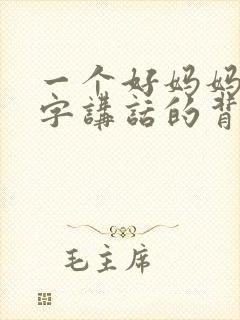 一个好妈妈
字講話的背
毛主席